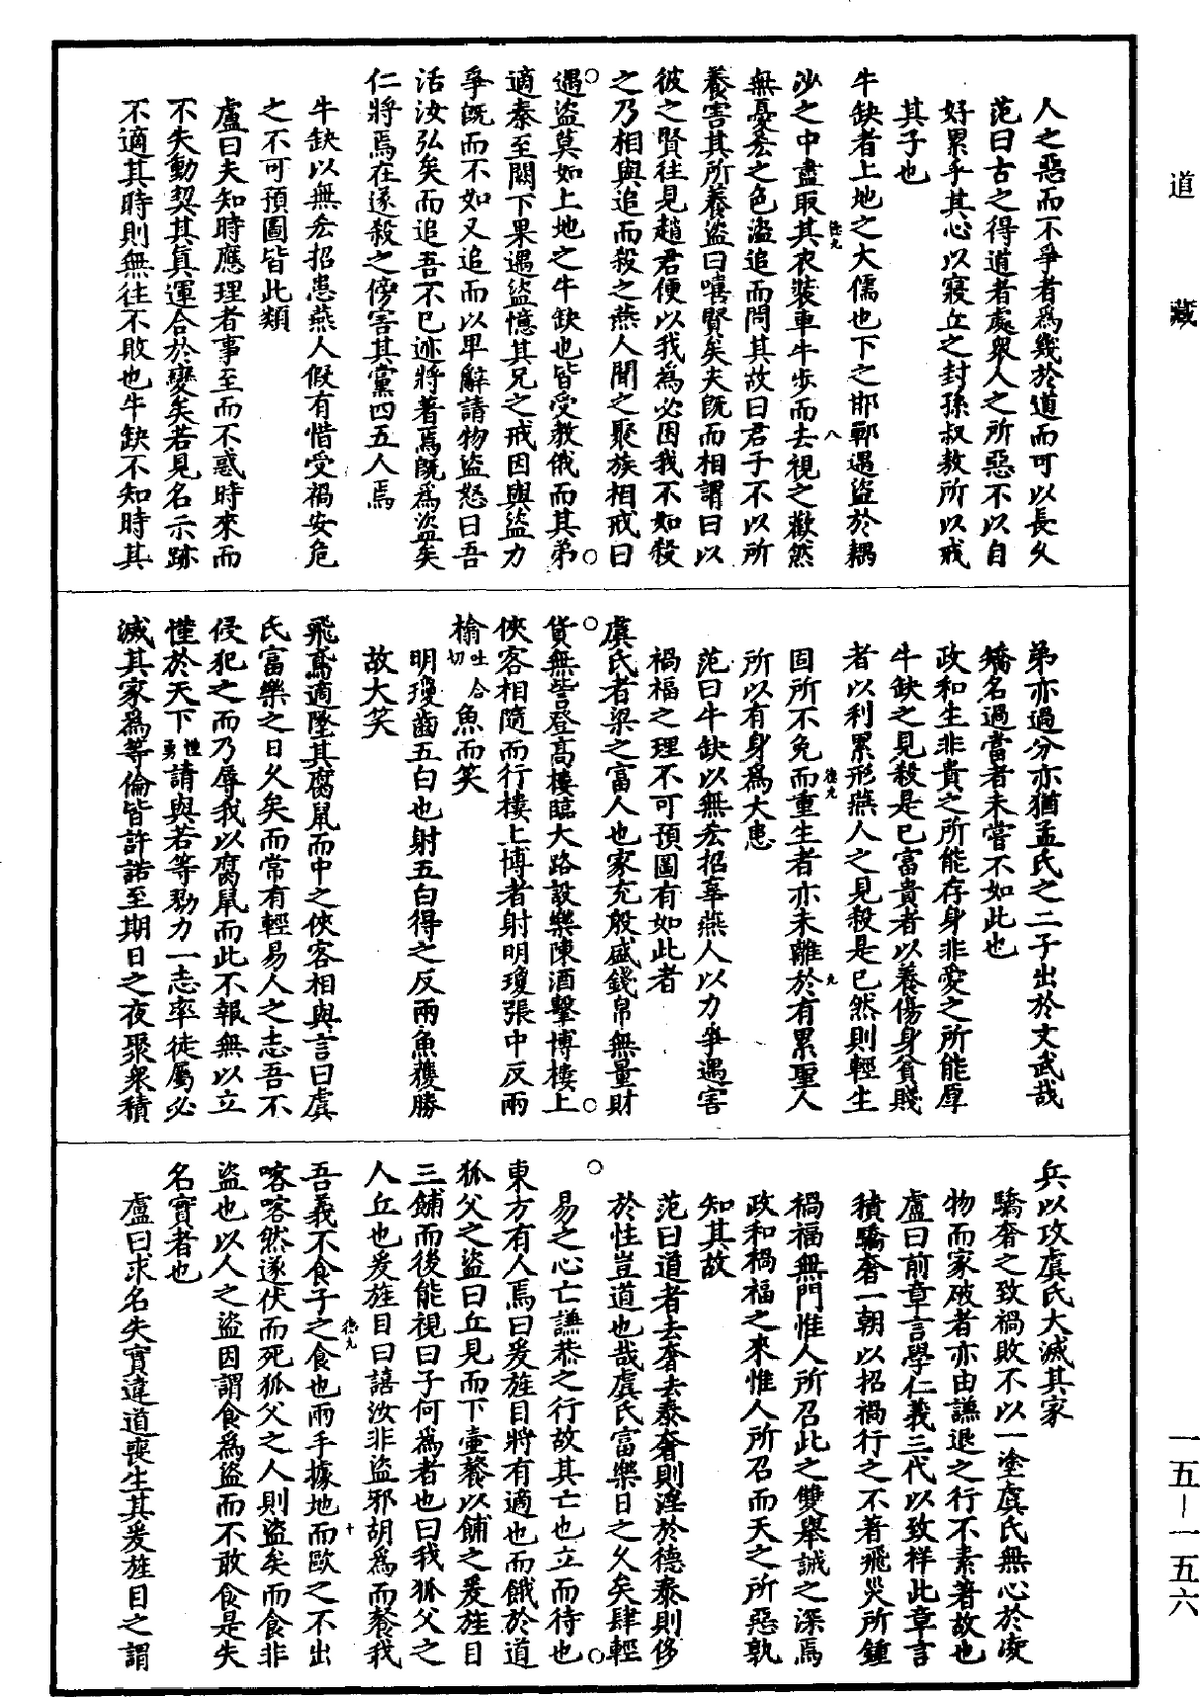 道藏
一五—一五六
人之惡而不爭者爲幾於道而可以長久
范曰古之得道者處衆人之所惡不以自
好累乎其心以寢丘之封孫叔敖所以戒
其子也
牛缺者上地之大儒也下之邯鄲遇盜於耦
沙之中盡取其衣裝車牛步而去視之歡然
無憂㤅之色盜追而問其故曰君子不以所
養害其所養盜曰嘻賢矣夫既而相謂曰以
彼之賢往見趙君便以我爲必困我不如殺
之乃相與追而殺之燕人聞之聚族相戒曰
遇盜莫如上地之牛缺也皆受教俄而其弟
適秦至關下果遇盜憶其兄之戒因與盜力
爭既而不如又追而以卑辭請物盜怒曰吾
活汝弘矣而追吾不已迹將著焉既爲盜矣
仁將焉在遂殺之傍害其黨四五人焉
牛缺以無㤅招患燕人假有惜受禍安危
之不可預圖皆此類
盧曰夫知時應理者事至而不惑時來而
不失動契其真運合於變矣若見名示跡
不適其時則無往不敗也牛缺不知時其
弟亦過分亦猶孟氏之二子出於文武哉
矯名過當者未嘗不如此也
政和生非貴之所能存身非愛之所能厚
牛缺之見殺是已富貴者以養傷身貧賤
者以利累形燕人之見殺是已然則輕生
固所不免而重生者亦未離於有累聖人
所以有身爲大患
范曰牛缺以無㤅招辜燕人以力爭遇害
禍福之理不可預圖有如此者
虞氏者梁之富人也家充殷盛錢帛無量財
貨無訾登高樓臨大路設樂陳酒擊博樓上
俠客相隨而行樓上博者射明瓊張中反兩
㩉吐合切魚而笑
明瓊齒五白也射五白得之反兩魚獲勝
故大笑
飛鳶適墜其腐鼠而中之俠客相與言曰虞
氏富樂之日久矣而常有輕易人之志吾不
侵犯之而乃辱我以腐鼠而此不報無以立
慬於天下慬勇請與若等勠力一志率徒屬必
滅其家爲等倫皆許諾至期日之夜聚衆積
兵以攻虞氏大滅其家
驕奢之致禍敗不以一塗虞氏無心於凌
物而家破者亦由謙退之行不素著故也
盧曰前章言學仁義三代以致祥此章言
積驕奢一朝以招禍行之不著飛災所鍾
禍福無門惟人所召此之雙舉誡之深焉
政和禍福之來惟人所召而天之所惡孰
知其故
范曰道者去奢去泰奢則淫於德泰則侈
於性豈道也哉虞氏富樂日之久矣肆輕
易之心亡謙恭之行故其亡也立而待也
東方有人焉曰爰旌目將有適也而餓於道
狐父之盜曰丘見而下壺餐以餔之爰旌目
三餔而後能視曰子何爲者也曰我狐父之
人丘也爰旌目曰譆汝非盜邪胡爲而餐我
吾義不食子之食也兩手據地而歐之不出
喀喀然遂伏而死狐父之人則盜矣而食非
盜也以人之盜因謂食爲盜而不敢食是失
名實者也
盧曰求名失實違道喪生其爰旌目之謂